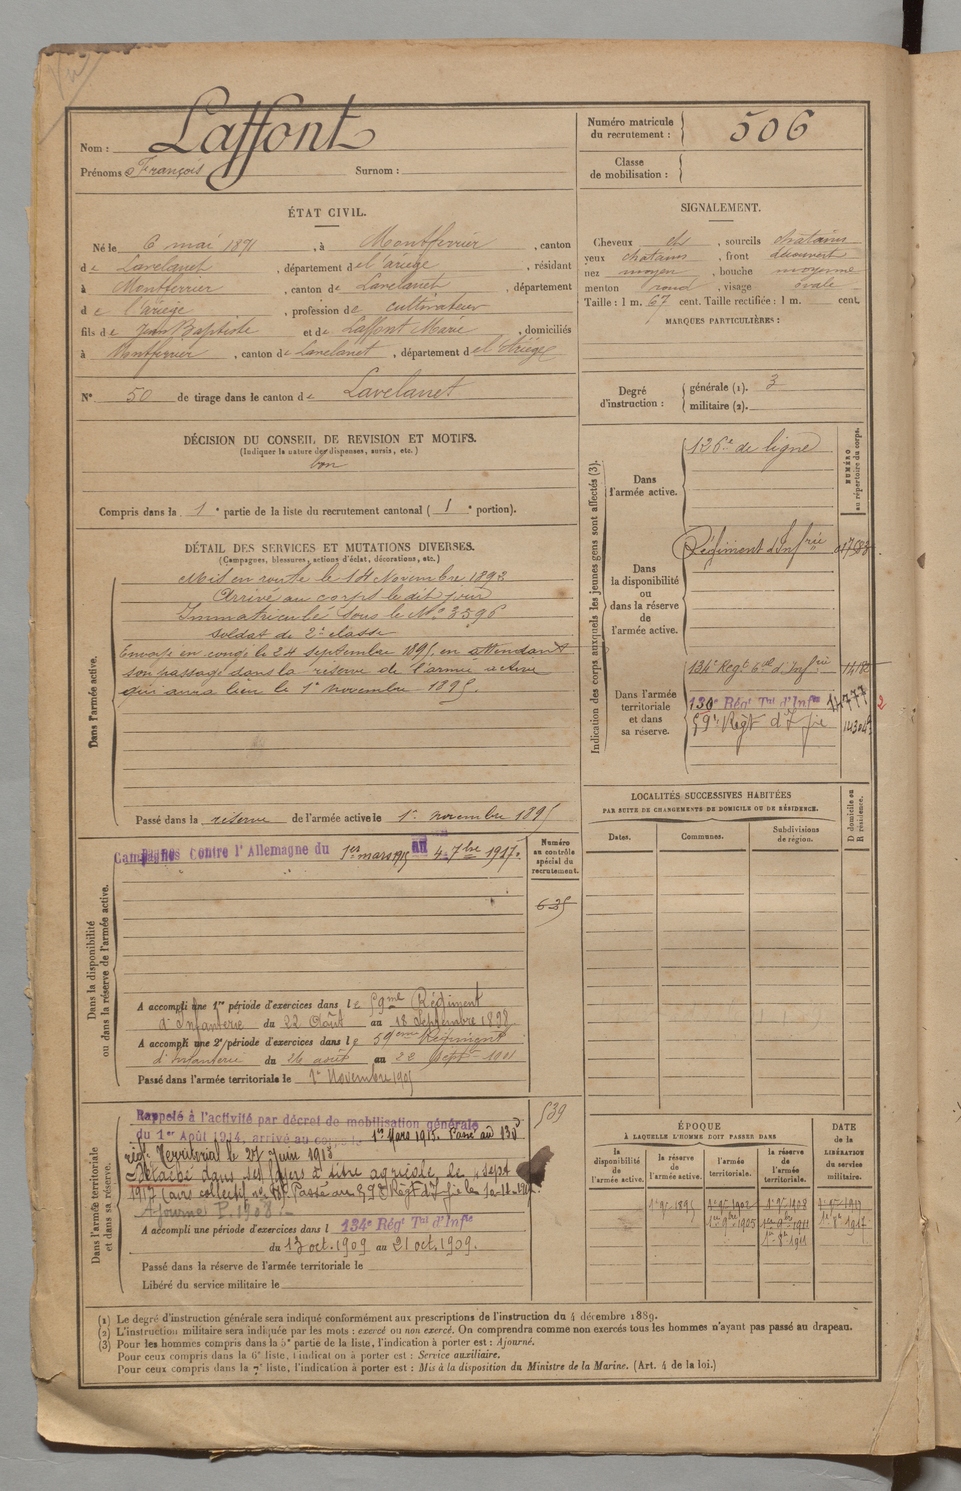 Vu
Nom : Laffont
Prénoms François Surnom :
Numéro matricule
du recrutement : 506
Classe
de mobilisation :
ÉTAT CIVIL.
Né le 6 mai 1871, à Montferrier, canton
de Lavelanet, département de l'ariège, résidant
à Montferrier, canton de Lavelanet, département
de l'ariège, profession de cultivateur
fils de Jean Baptiste et de Laffont Marie, domiciliés
à Montferrier, canton de Lavelanet, département de l'Ariège
N° 50 de tirage dans le canton de Lavelanet
SIGNALEMENT.
Cheveux chs, sourcils chatains
yeux chatains, front découvert
nez moyen, bouche moyenne
menton rond, visage ovale
Taille : 1 m. 67 cent. Taille rectifiée : 1 m. cent.
MARQUES PARTICULIÈRES :
Degré
d'instruction :
générale (1). 3
militaire (2).
DÉCISION DU CONSEIL DE REVISION ET MOTIFS.
(Indiquer la nature des dispenses, sursis, etc.)
bon
Compris dans la 1e partie de la liste du recrutement cantonal (1e portion).
DÉTAIL DES SERVICES ET MUTATIONS DIVERSES.
(Campagnes, blessures, actions d'éclat, décorations, etc.)
Dans l'armée active.
Mis en route le 14 Novembre 1892
Arrivé au corps le dit jour
Immatriculé sous le N° 3596
soldat de 2e classe
Envoyé en congé le 24 septembre 1895 en attendant
son passage dans la réserve de l'armée active
qui aura lieu le 1er novembre 1895.
Passé dans la réserve de l'armée active le 1er novembre 1895
Indication des corps auxquels les jeunes gens sont affectés (3).
NUMÉRO
au répertoire du corps.
Dans
l'armée active.
126e de ligne
Dans
la disponibilité
ou
dans la réserve
de
l'armée active.
Régiment d'Infrie
Dans l'armée
territoriale
et dans
sa réserve.
134e Régt d'Infrie
130e Régt Tal d'Infie 14777 2
59e Régt d'Ifie
Dans la disponibilité
ou dans la réserve de l'armée active.
Campagnes Contre l'Allemagne du 1er mars 1915 au 4 7bre 1917.
Numéro
au contrôle
spécial du
recrutement.
635
A accompli une 1re période d'exercices dans le 59me Régiment
d'Infanterie du 22 Août au 18 Septembre 1898
A accompli une 2e période d'exercices dans le 59eme Régiment
d'infanterie du 26 août au 22 Sept 1901
Passé dans l'armée territoriale le 1er Novembre 1905
LOCALITÉS SUCCESSIVES HABITÉES
PAR SUITE DE CHANGEMENTS DE DOMICILE OU DE RÉSIDENCE.
Dates. Communes. Subdivisions
de région.
D domicile ou
R résidence.
Dans l'armée territoriale
et dans sa réserve.
Rappelé à l'activité par décret de mobilisation générale
du 1er Août 1914, arrivé au corps le 1er Mars 1915. Passé au 130e
régt Territorial le 21 Juin 1915
Détaché dans ses foyers à titre agricole le sept
1917
Ajourné P. 1908.
539
A accompli une période d'exercices dans l 134e Régt Tal d'Infie
du 13 oct. 1909 au 21 oct. 1909.
Passé dans la réserve de l'armée territoriale le
Libéré du service militaire le
ÉPOQUE
À LAQUELLE L'HOMME DOIT PASSER DANS
DATE
de la
LIBÉRATION
du service
militaire.
la
disponibilité
de
l'armée active.
la réserve
de
l'armée active.
l'armée
territoriale.
la réserve
de
l'armée
territoriale.
(1) Le degré d'instruction générale sera indiqué conformément aux prescriptions de l'instruction du 4 décembre 1889.
(2) L'instruction militaire sera indiquée par les mots : exercé ou non exercé. On comprendra comme non exercés tous les hommes n'ayant pas passé au drapeau.
(3) Pour les hommes compris dans la 5e partie de la liste, l'indication à porter est : Ajourné.
Pour ceux compris dans la 6e liste, l'indication à porter est : Service auxiliaire.
Pour ceux compris dans la 7e liste, l'indication à porter est : Mis à la disposition du Ministre de la Marine. (Art. 4 de la loi.)